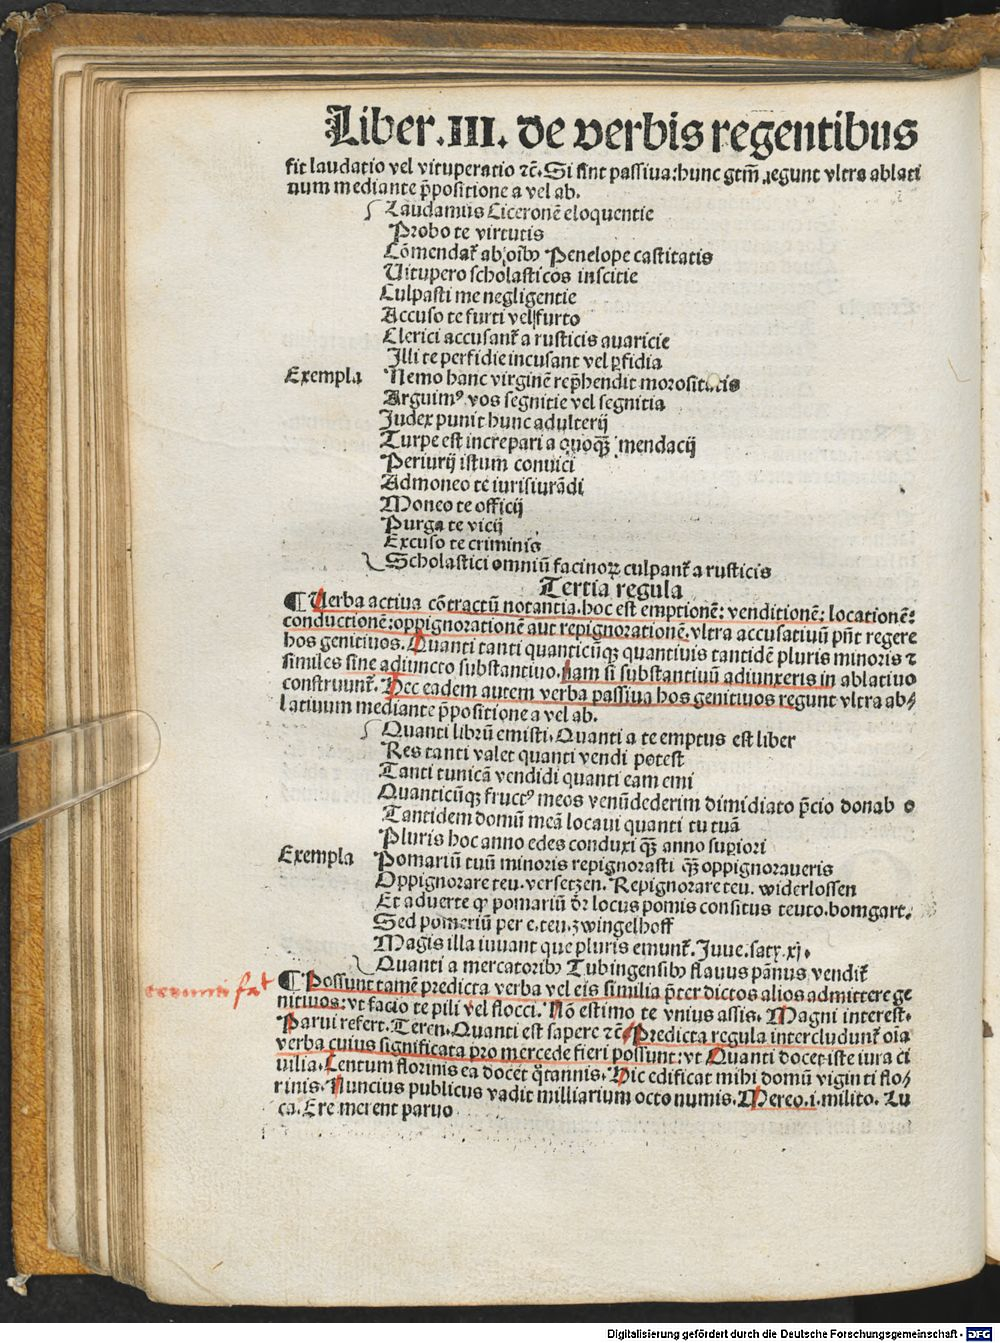 Liber.III. de verbis regentibus
fit laudatio vel vituperatio ⁊c̄. Si sint passiua: hunc gtm̄ regunt vltra ablati
uum mediante p̄positione a vel ab.
Laudamus Ciceronē eloquentie
Probo te virtutis
Cōmendat᷑ ab oībꝰ Penelope castitatis
Uitupero scholasticos inscitie
Culpasti me negligentie
Accuso te furti vel furto
Clerici accusant᷑ a rusticis auaricie
Illi te perfidie incusant vel ꝑfidia
Exempla Nemo hanc virginē rep̄hendit morositatis
Arguimꝰ vos segnitie vel segnitia
Judex punit hunc adulterij
Turpe est increpari a quoqꝫ mendacij
Periurij istum conuici
Admoneo te iurisiurādi
Moneo te officij
Purga te vicij
Excuso te criminis
Scholastici omniū facinoꝝ culpant᷑ a rusticis
Tertia regula
¶ Uerba actiua cōtractū notantia. hoc est emptionē: venditionē: locationē:
conductionē: oppignorationē aut repignorationē. vltra accusatiuū pn̄t regere
hos genitiuos. Quanti tanti quanticūqꝫ quantiuis tantidē pluris minoris ⁊
similes sine adiuncto substantiuo. nam si substantiuū adiunxeris in ablatiuo
construunt᷑. Hec eadem autem verba passiua hos genitiuos regunt vltra ab/
latiuum mediante p̄positione a vel ab.
Quanti librū emisti. Quanti a te emptus est liber
Res tanti valet quanti vendi potest
Tanti tunicā vendidi quanti eam emi
Quanticūqꝫ fructꝰ meos venūdederim dimidiato p̄cio donabo
Tantidem domū meā locaui quanti tu tuā
Pluris hoc anno edes conduxi qꝫ̄ anno suꝑiori
Exempla Pomariū tuū minoris repignorasti qꝫ̄ oppignoraueris
Oppignorare teu. versetzen. Repignorare teu. widerlossen
Et aduerte ꝙ pomariū dr̄ locus pomis consitus teuto. bomgart.
Sed pomeriū per e. teu. zwingelhoff
Magis illa iuuant que pluris emunt᷑. Juue. saty. xj.
Quanti a mercatoribꝰ Tubingensibꝰ flauus pānus vendit᷑
¶ Possunt tamē predicta verba vel eis similia p̄ter dictos alios admittere ge
nitiuos: vt facio te pili vel flocci. Nō estimo te vnius assis. Magni interest.
Parui refert. Teren. Quanti est sapere ⁊c̄. Predicta regula intercludunt᷑ oīa
verba cuius significata pro mercede fieri possunt: vt Quanti docet iste iura ci
uilia. Centum florinis ea docet qͣtannis. Hic edificat mihi domū viginti flo/
rinis. Nuncius publicus vadit milliarium octo numis. Mereo. i. milito. Lu
ca. Ere merent paruo
Digitalisierung gefördert durch die Deutsche Forschungsgemeinschaft - DFG